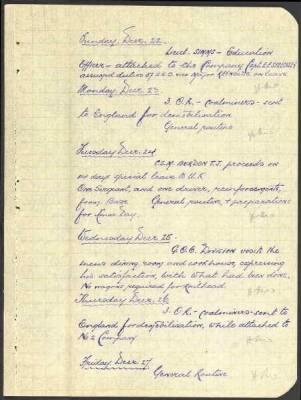 Sunday Decr. 22.
Lieut. SIMMS - Education
Officer - attached to the Company Capt.
assumed duties of S.S.O. vice Major on leave
Monday Decr. 23
3 O.R. - Coalminers - sent
to England for demobilisation
General routine
Tuesday Decr. 24
C.S.M. T.J. proceeds on
special leave to U.K.
One Sergeant, and one driver, reinforcements,
from Base General routine, & preparations
for Xmas Day.
Wednesday Decr. 25.
G.O.C. Division visits the
mens dining room and cookhouse, expressing
his satisfaction, with what had been done.
No wagons required for Railhead.
Thursday Decr. 26
3 O.R. - Coalminers - sent to
England for demobilisation, while attached to
No 2 Company
Friday Decr. 27
General Routine